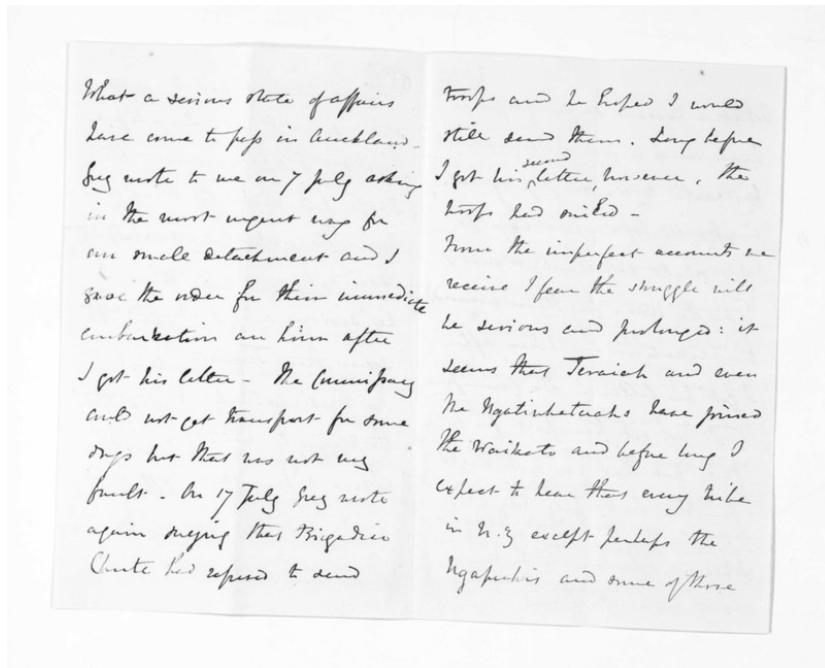 What a serious state of affairs
have come to pass in Auckland -
Grey wrote to me on 7 July asking
in the most urgent way for
our small detachment and I
gave the order for their immediate
embarkation an hour after
I got his letter - The Commissary
could not get transport for some
days but that was not my
fault. On 17 July Grey wrote
again saying that Brigadier
Chute had refused to send
troops and he hoped I would
still send them. Long before
I got his second letter, however, the
troops had sailed -
From the imperfect accounts we
receive I fear the struggle will
be serious and prolonged: it
seems that Teraich and even
the Ngatiwhatuahs have joined
the Waikato and before long I
expect to hear that every tribe
in N.Z except perhaps the
Ngapuhis and some of those